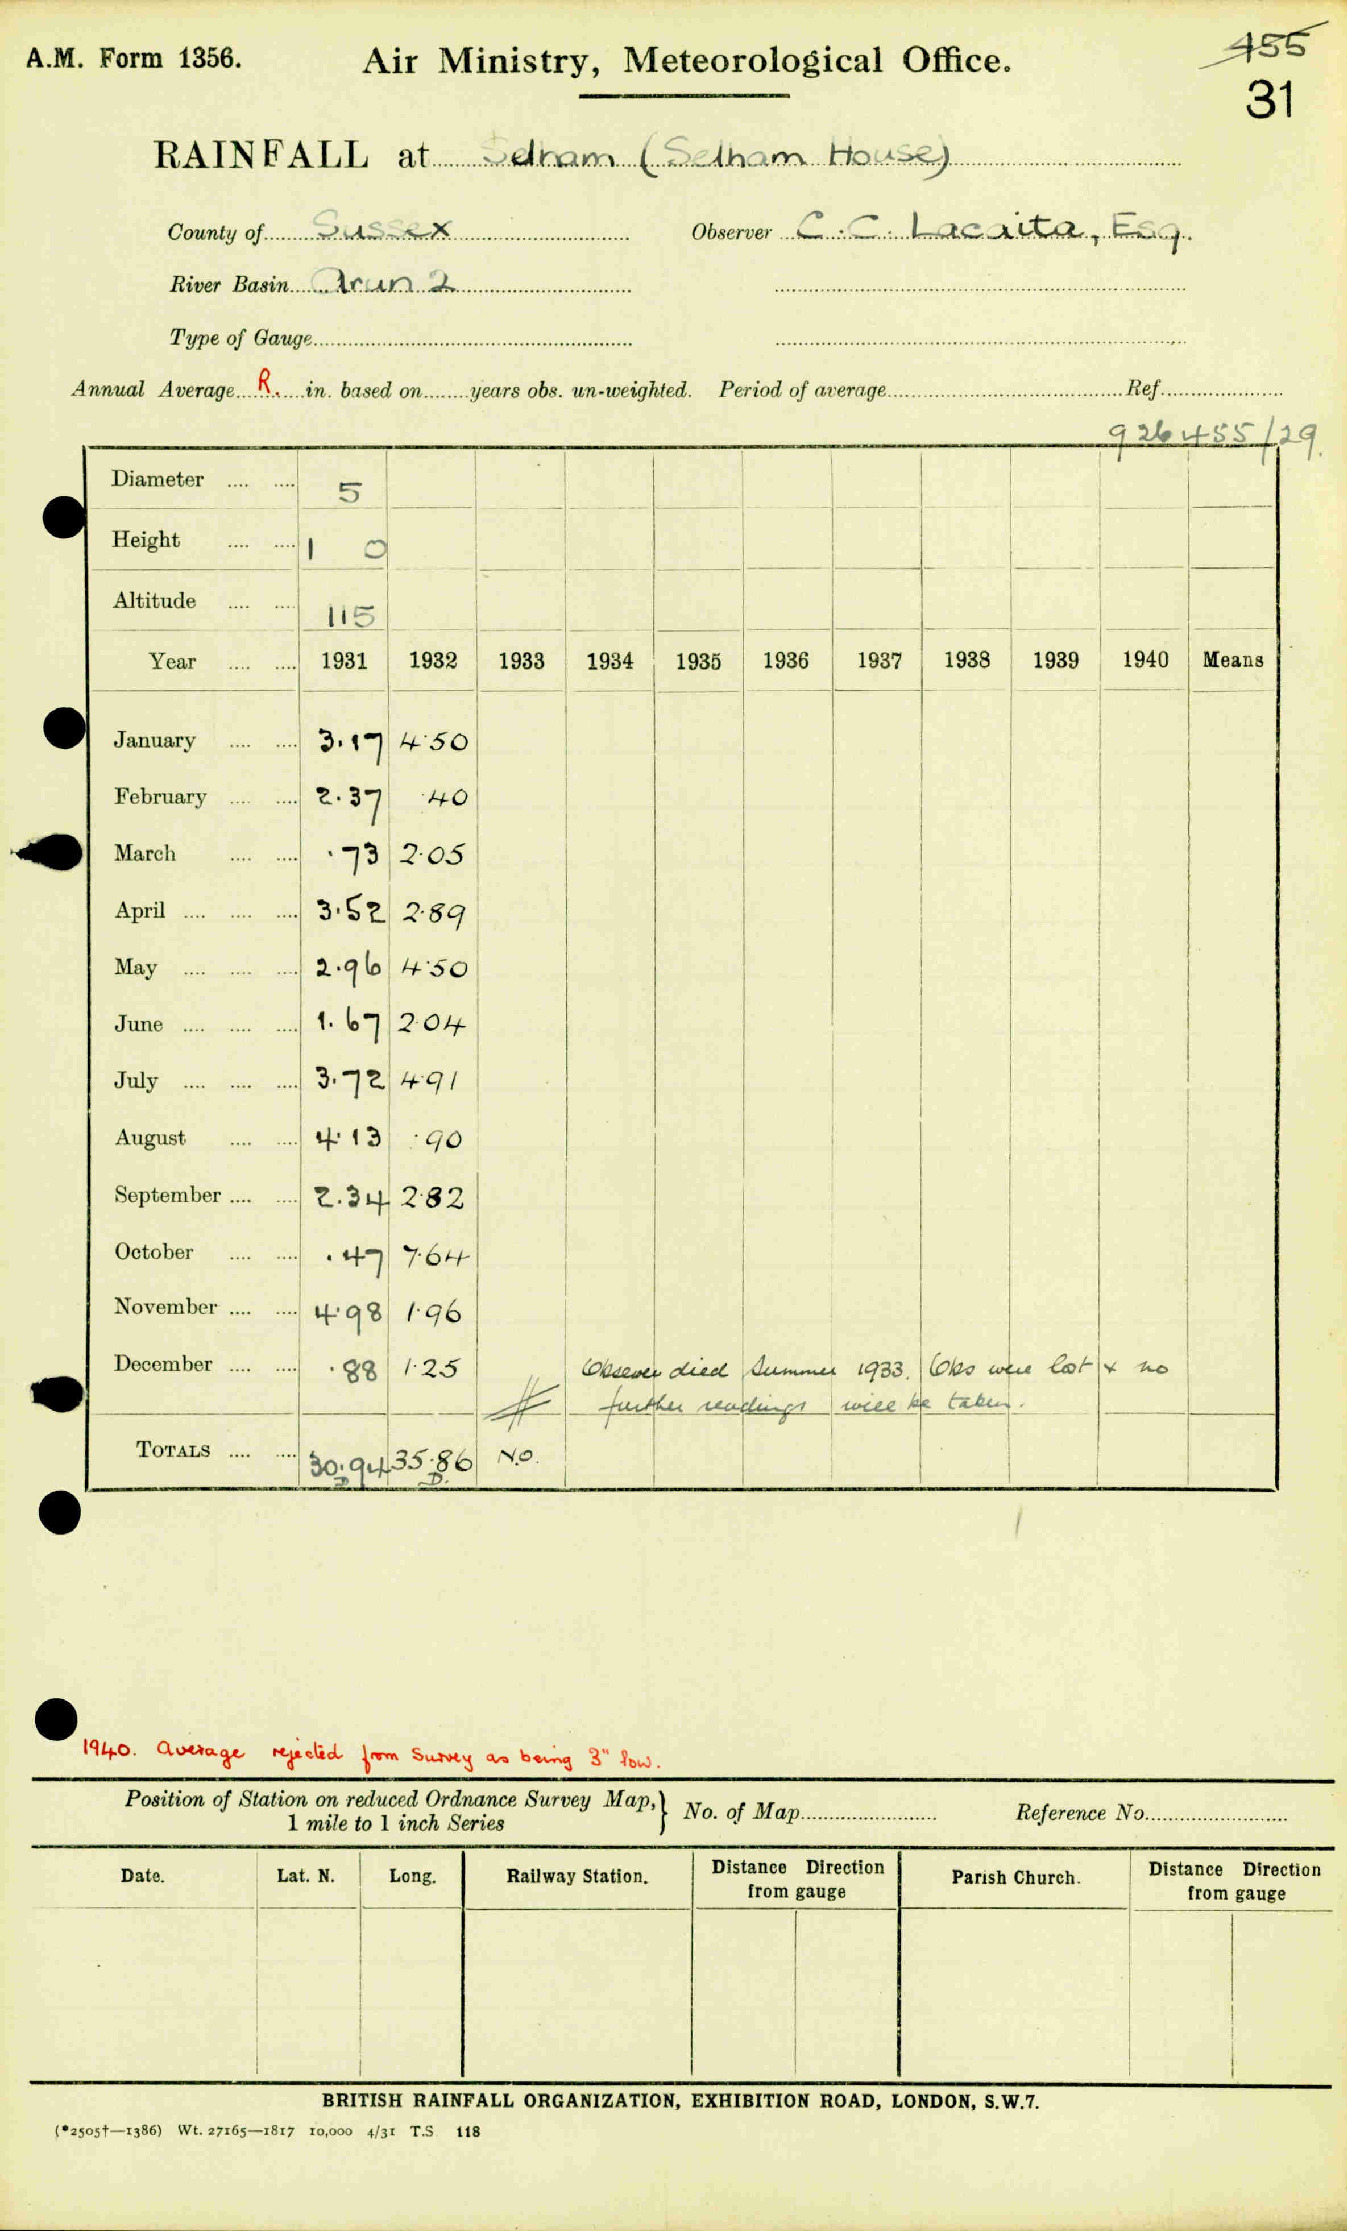 A.M. Form 1356. Air Ministry, Meteorological Office. 455
31
RAINFALL at Selham (Selham House)
County of Sussex Observer C. C. Lacaita, Esq.
River Basin Arun 2
Type of Gauge
Annual Average R. in. based on years obs. un-weighted. Period of average Ref.
926455/29.
Diameter 5
Height 1 0
Altitude 115
Year 1931 1932 1933 1934 1935 1936 1937 1938 1939 1940 Means
January 3.17 4.50
February 2.37 .40
March .73 2.05
April 3.52 2.89
May 2.96 4.50
June 1.67 2.04
July 3.72 4.91
August 4.13 .90
September 2.34 2.82
October .47 7.64
November 4.98 1.96
December .88 1.25 Observer died Summer 1933. Obs were lost & no
further readings will be taken.
TOTALS 30.94 35.86 N.O.
D D.
1940. Average rejected from Survey as being 3" low.
Position of Station on reduced Ordnance Survey Map,} No. of Map Reference No.
1 mile to 1 inch Series
Date. Lat. N. Long. Railway Station. Distance Direction Parish Church. Distance Direction
from gauge from gauge
BRITISH RAINFALL ORGANIZATION, EXHIBITION ROAD, LONDON, S.W.7.
(*2505†—1386) Wt. 27165—1817 10,000 4/31 T.S 118